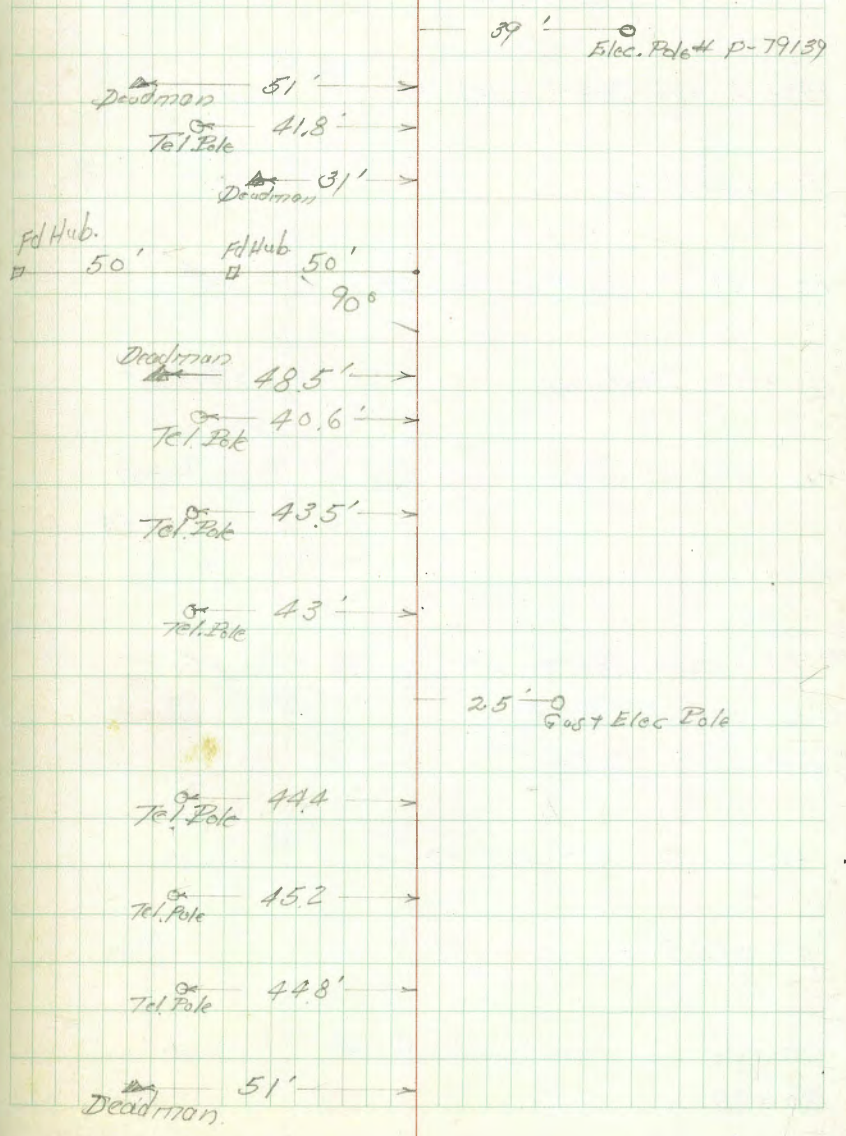 39'
Elec. Pole# P-79139
51'
Deadman
41.8'
Tel. Pole
31'
Deadman
Fd Hub.
50'
Fd Hub
50'
90°
Deadman
48.5'
40.6'
Tel. Pole
43.5'
Tel. Pole
43'
Tel. Pole
25'
Gas + Elec Pole
44.4
Tel. Pole
45.2
Tel. Pole
44.8'
Tel. Pole
51'
Deadman